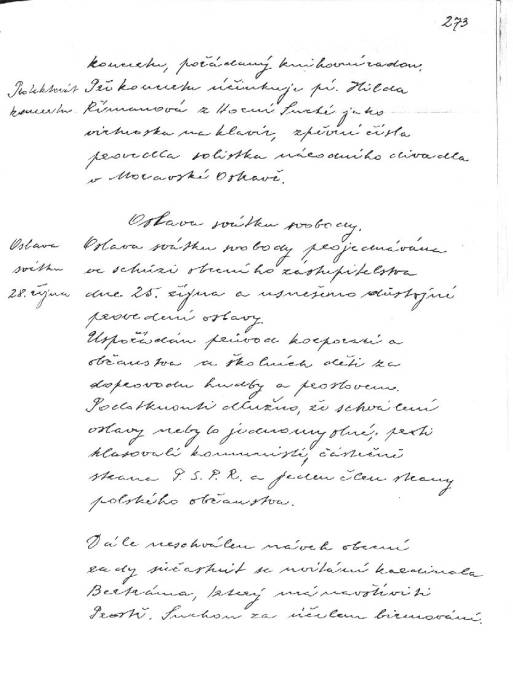 273
koncertu, pořádaný knihovní radou.
Při koncertu účinkuje pí. Hilda
koncertu.
Římanová z Horní Suché jako
virtuoska na klavír, zpěvní čísla
provedla solistka národního divadla
v Moravské Ostravě.
Oslava svátku svobody.
Oslava
svátku
28. října
Oslava svátku svobody projednávána
ve schůzi obecního zastupitelstva
dne 25. října a usneseno důstojné
provedení oslavy
Uspořádán průvod korporací a
občanstva a školních dětí za
doprovodu hudby a proslovem.
Podotknouti dlužno, že schválení
oslavy nebylo jednomyslné; proti
hlasovali komunisti, částečně
strana P. S. P. R. a jeden člen strany
polského občanstva.
Dále neschválen návrh obecní
rady súčastnit se uvítání kardinála
Bertráma, který má navštíviti
Prostř. Suchou za účelem biřmování.